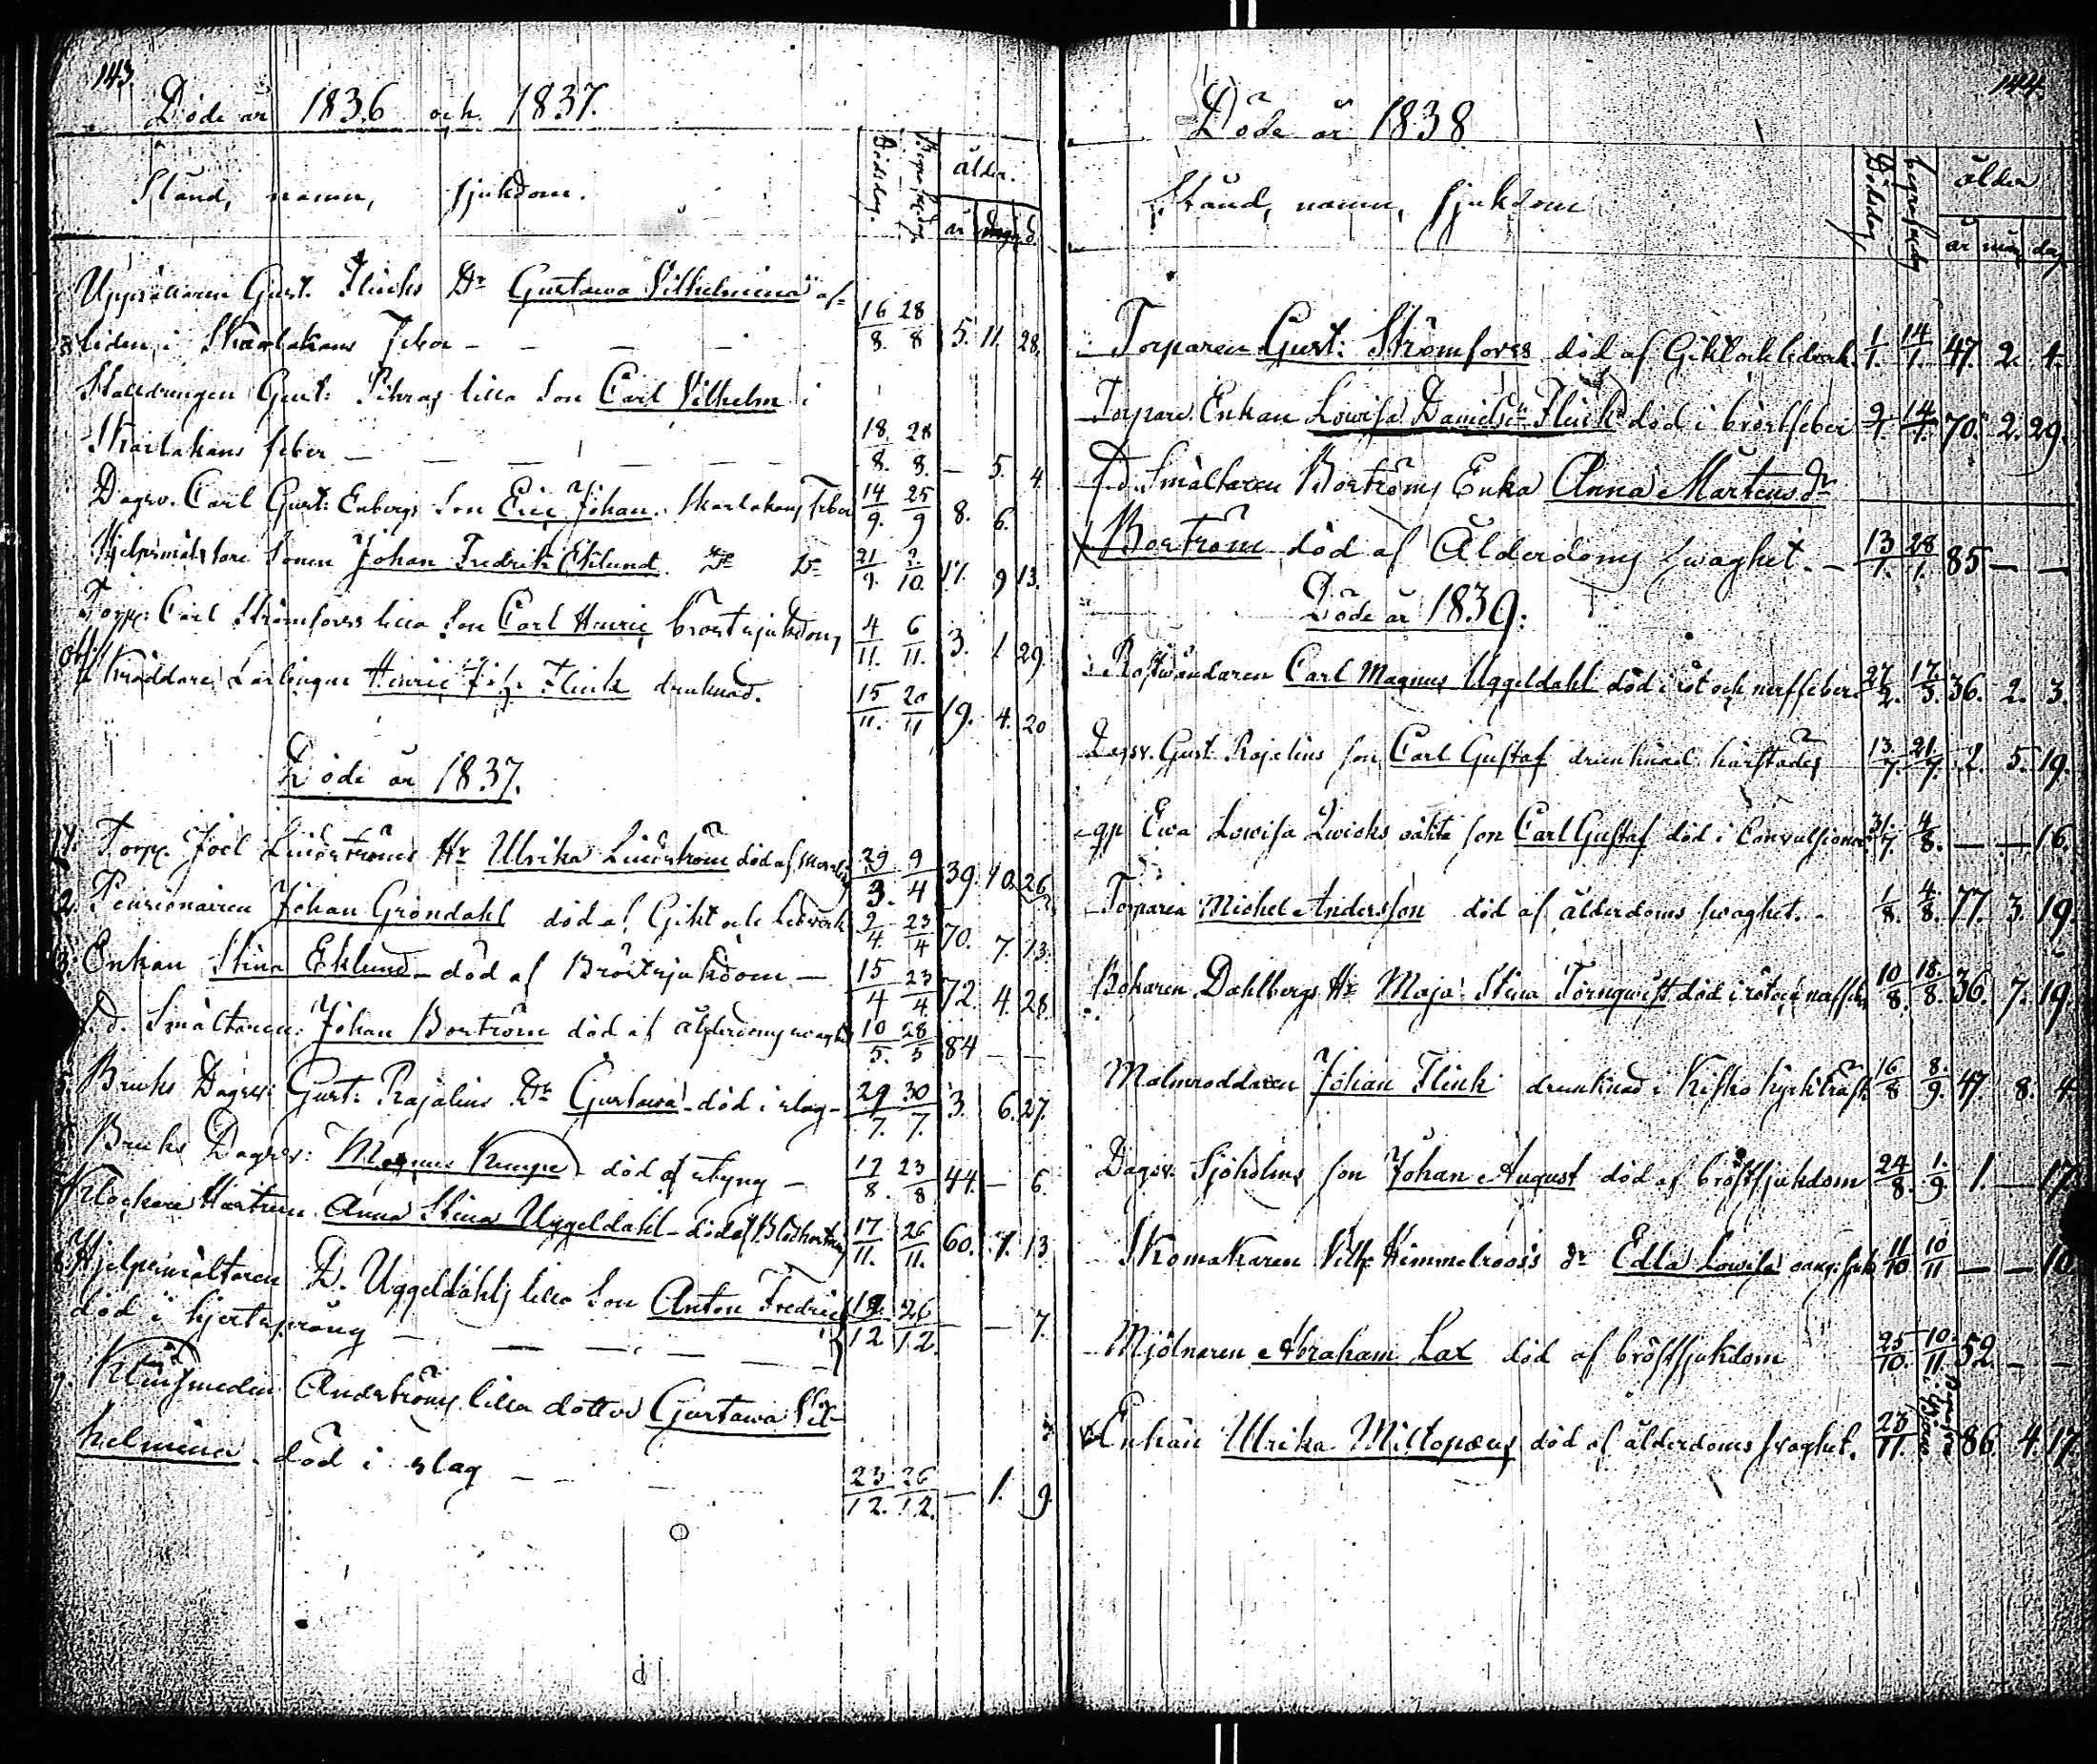 143.
Döde år 1836 och 1837.
Stånd, namn, sjukdom.
Dödsdag.
ålder.
år
Gust. Flincks Dr Gustawa Vilhelmina af-
liden i Skarlakans feber — — — — 16/8. 28/8 5. 11. 28.
Gust: lilla Son Carl Vilhelm i
Skarlakans feber — — — — — 18/8. 28/8. — 5. 4.
Dagsv. Carl Gust: Enbergs Son Eric Johan. Skarlakans feber 14/9. 25/9 8. 6.
Sonen Johan Fredrik Eklund. Do Do 21/9. 2/10. 17. 9 13.
Torp: Carl Strömfors lilla Son Carl Henric bröstsjukdom, 4/11. 6/11. 3. 1. 29.
Skräddare Lärlingen Henric Joh. Flink drunknad. 15/11. 20/11 19. 4. 20
Döde år 1837.
1. Torp. Joel Lindströms Hr Ulrika Lindström död af 29/3. 9/4 39. 10. 26
2. Pensionairen Johan Gröndahl död af Gikt och Ledvärk 2/4. 23/4 70. 7. 13.
3. Enkan Stina Eklund – död af Bröstsjukdom — 15/4 23/4. 72. 4. 28.
f.d. Smältaren: Johan Boström död af ålderdoms 10/5. 28/5 84 — —
5. Bruks Dagsv: Gust: Rajalins Dr Gustawa – död i slag – 29/7. 30/7. 3. 6. 27.
Bruks Dagsv: Magnus Kempe – död af styng – 12/8. 23/8 44. — 6.
Klockare Hustrun Anna Stina Uggeldahl – död af 17/11. 26/11. 60. 7. 13
Hjelpsmältaren D. Uggeldahls lilla Son Anton Fredric
död i hjertsprång — — — 19/12 26/12. — — 7.
9. Klinsmeden Andströms lilla dotter Gustawa Vil-
helmina – död i slag — — 23/12. 26/12. — 1. 9.
144.
Döde år 1838.
Stånd, namn, sjukdom
Dödsdag
begrafnsdag
ålder
år mån dag.
Torparen Gust: Strömfors död af Gikt och ledvärk. 1/1. 14/1. 47. 2. 4.
Torpare Enkan Lowisa Danielsdr Flink död i bröstfeber 2/1. 14/1. 70. 2. 29.
f.d. Smältaren Boströms Enka Anna Mårtensdr
Boström död af Ålderdoms swaghet. — 13/1. 28/1. 85 — —
Döde år 1839.
Rostwändaren Carl Magnus Uggeldahl död i röt och nerffeber 27/2. 17/3. 36. 2. 3.
Dagsv. Gust Rajalins son Carl Gustaf drunknad härstädes 13/7. 21/7. 2. 5. 19.
qp Ewa Lowisa Qwicks oäkta son Carl Gustaf död i Convulsioner 31/7. 4/8. — — 16.
Torparen Michel Andersson död af ålderdoms swaghet. 1/8. 4/8. 77. 3. 19.
Bokaren Dahlbergs Hr Maja Stina Törnqwist död i röt och nerffeber 10/8. 18/8. 36. 7. 19.
Malmroddaren Johan Flink drunknad i Kisko Kyrkträsk 16/8 8/9. 47. 8. 4
Dagsv. Sjöholms son Johan August död af bröstsjukdom 24/8. 1/9. 1. — 17.
Skomakaren Vilh. Himmelroos's dr Edla Lowisa oang: sjuk 11/10 10/11 — — 10.
Mjölnaren Abraham Lax död af bröstsjukdom 25/10. 10/11. 52. — —
Enkan Ulrika Miltopæus död af ålderdoms swaghet. 23/11. 86. 4. 17.